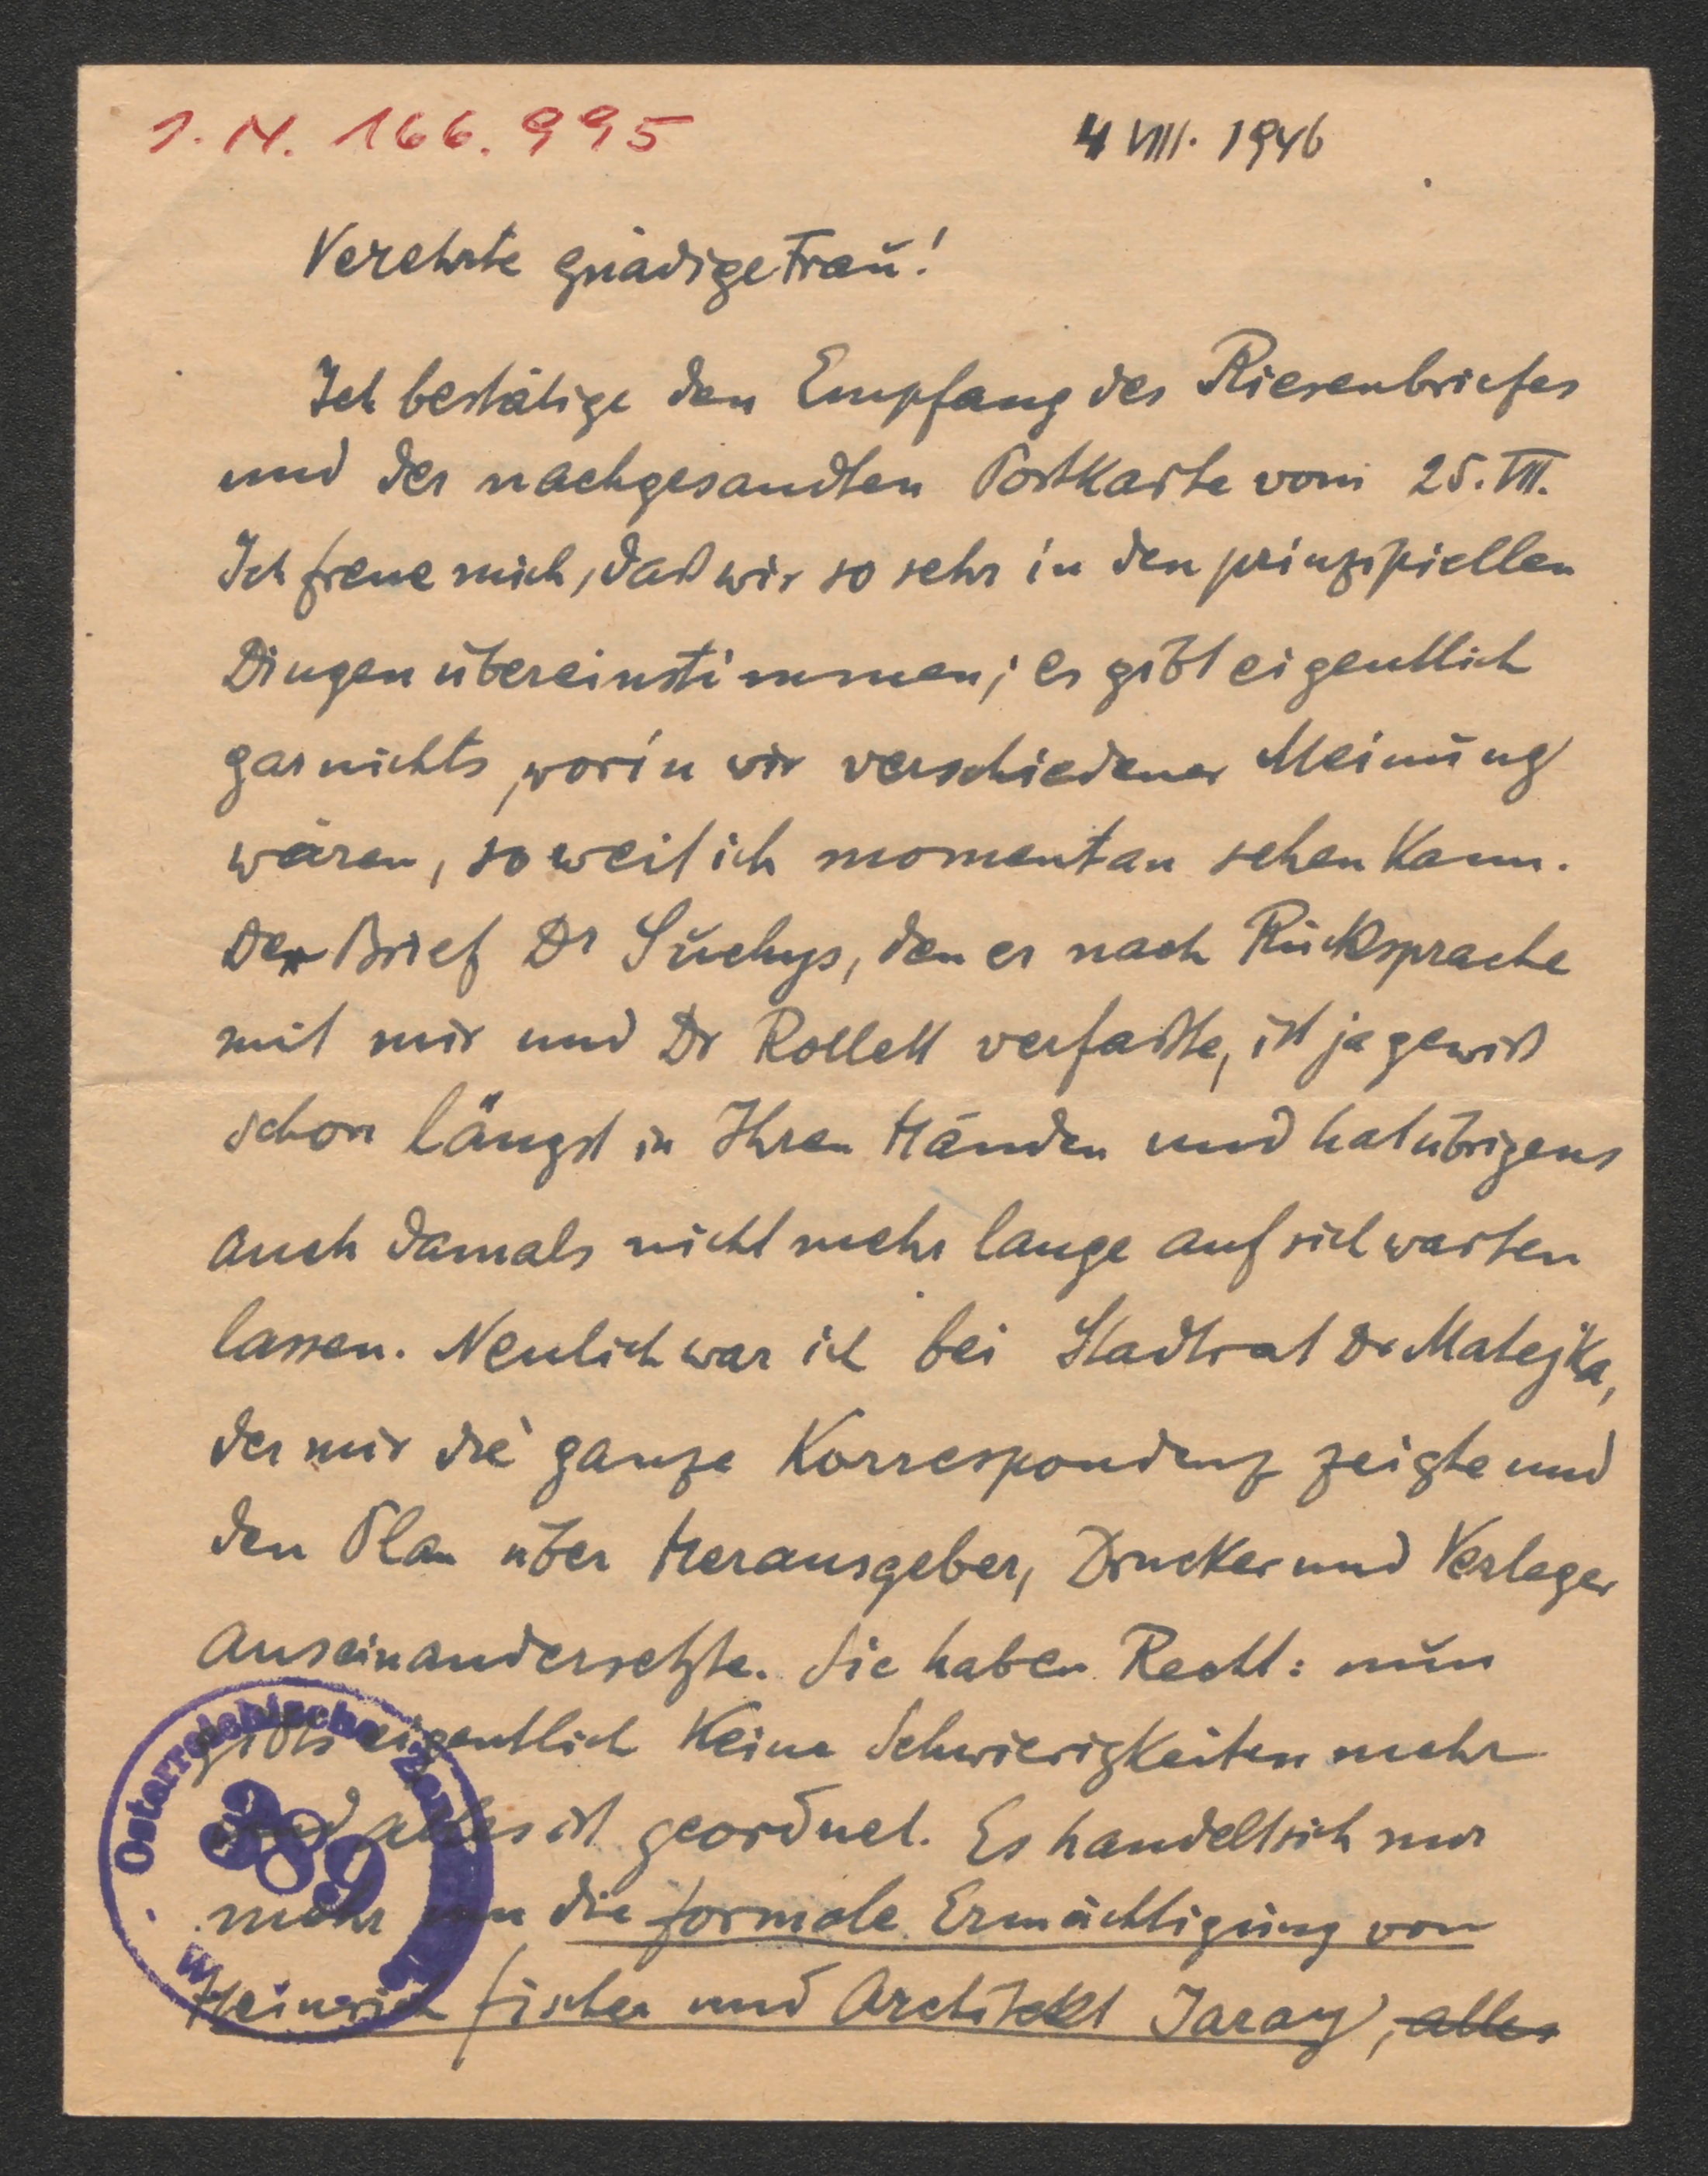 I.N. 166.995
4 VIII. 1946
Verehrte gnädige Frau!
Ich bestätige den Empfang des Riesenbriefes
und der nachgesandten Postkarte vom 25. VII.
Ich freue mich, daß wir so sehr in den prinzipiellen
Dingen übereinstimmen; es gibt eigentlich
gar nichts, worin wir verschiedener Meinung
wären, soweit ich momentan sehen kann.
Der Brief Dr Suchys, den er nach Rücksprache
mit mir und Dr Rollett verfaßte, ist ja gewiß
schon längst in Ihren Händen und hat übrigens
auch damals nicht mehr lange auf sich warten
lassen. Neulich war ich bei Stadtrat Dr Matejka,
der mir die ganze Korrespondenz zeigte und
den Plan über Herausgeber, Drucker und Verleger
auseinandersetzte. Sie haben Recht: nun
gibts eigentlich keine Schwierigkeiten mehr
und alles ist geordnet. Es handelt sich nur
mehr um die formale Ermächtigung von
Heinrich Fischer und Architekt Jaray, alles
Österreichische
389